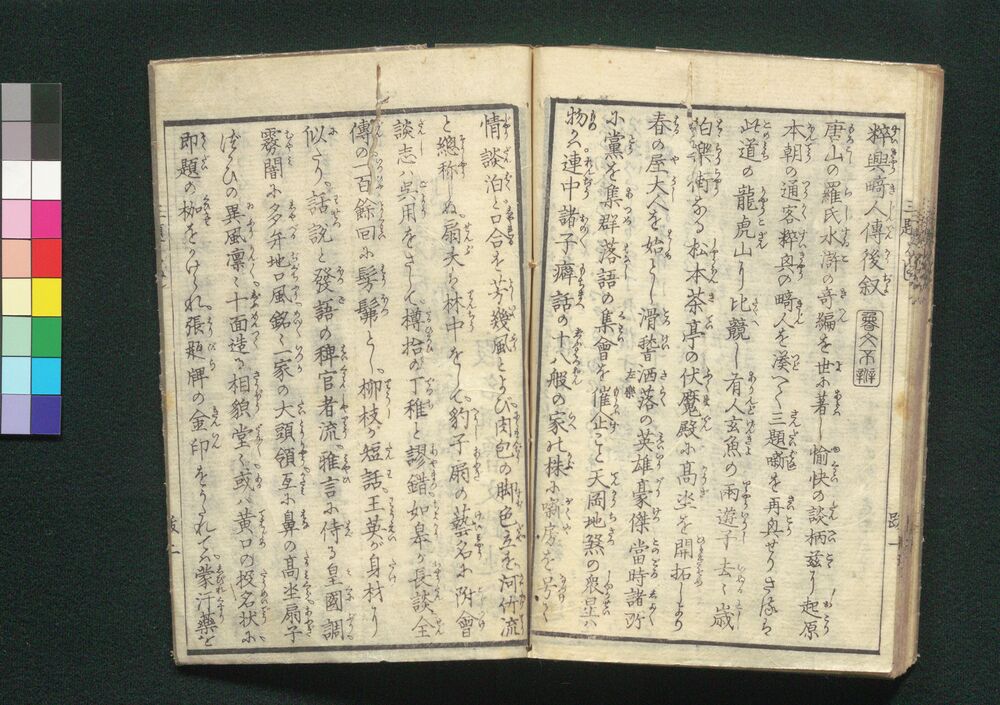 粋興畸人傳後叙
唐山の羅氏水滸の奇編を世に著し愉快の談柄茲に起原
本朝の通客粋興の畸人を湊へて三題噺を再興せりさるは
此道の龍虎山に比競し有人玄魚の兩遊子去る歳
柏樂街なる松本茶亭の伏魔殿に高坐を開拓しより
春の屋大人を始とし滑稽洒落の英雄豪傑當時諸所
に黨を集群落語の集會を催こと天岡地煞の衆星は
物かは連中諸子癖話の十八般の家の株に噺房を号て
情談泊と口合を芳幾風とよび肉包の脚色立を河竹流
と總称ぬ扇夫が林中をして豹子扇の藝名に附會
談志は呉用をさして樽拾の丁稚と謬錯如皐が長談全
傳の一百餘回に髣髴とし柳枝が短話王英が身材に
似たり話説と發語の稗官者流雅言に侍る皇國調
霧闇に多弁地口風銘々一家の大頭領互に鼻の高坐扇子
づかひの異風凛々十面造る相貌堂々或は黄口の投名状に
即題の枷をかけられ張題牌の金印をうたれて蒙汗藥と